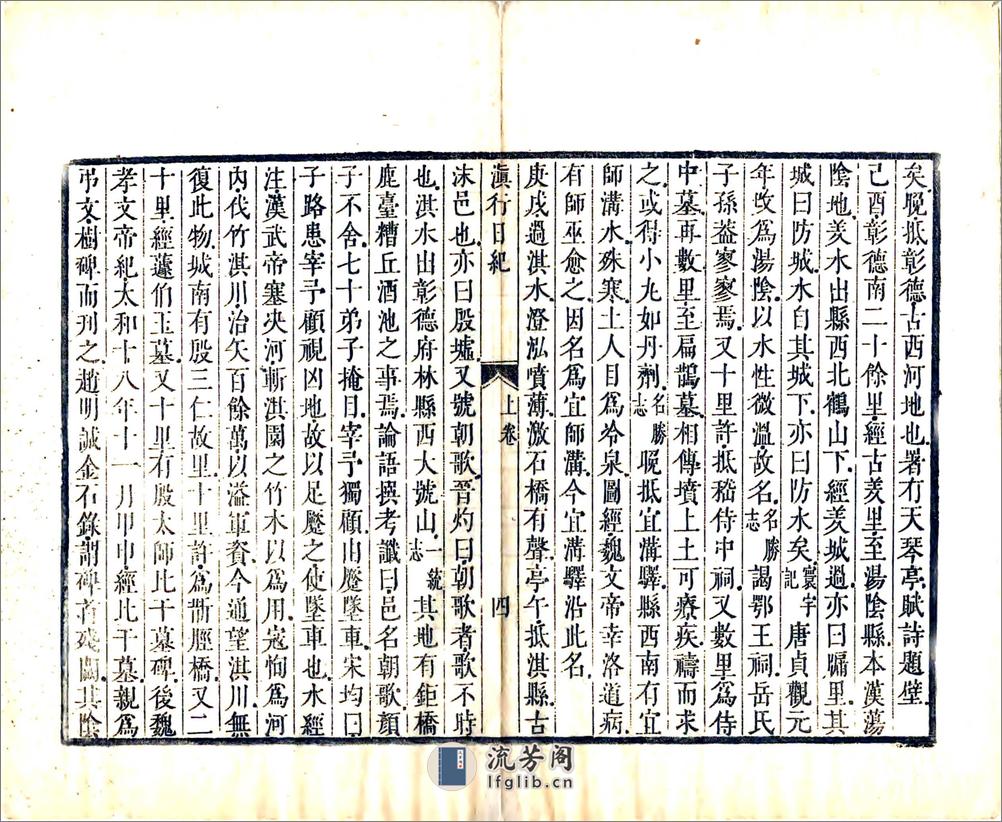 矣晚抵彰德古西河地也署有天琴亭賦詩題壁
己酉彰德南二十餘里經古羑里至湯陰縣本漢蕩
陰地羑水出縣西北鶴山下經羑城過亦曰牖里其
城曰防城水自其城下亦曰防水矣寰宇記唐貞觀元
年攺為湯陰以水性微溫故名名勝志謁鄂王祠岳氏
子孫葢寥寥焉又十里許抵嵇侍中祠又數里為侍
中墓再數里至扁鵲墓相傳墳上土可療疾禱而求
之或得小丸如丹劑名勝志晚抵宜溝驛縣西南有宜
師溝水殊寒土人目為冷泉圖經魏文帝幸洛道病
有師巫愈之因名為宜師溝今宜溝驛沿此名
庚戌過淇水澄泓噴薄激石橋有聲亭午抵淇縣古
滇行日紀 上卷 四
沬邑也亦曰殷墟又號朝歌晉灼曰朝歌者歌不時
也淇水出彰德府林縣西大號山一統志其地有鉅橋
鹿臺糟丘酒池之事焉論語撰考讖曰邑名朝歌顏
子不舍七十弟子掩目宰予獨顧山蹷墜車宋均曰
子路患宰予顧視凶地故以足蹷之使墜車也水經
注漢武帝塞央河斬淇園之竹木以為用寇恂為河
內伐竹淇川治矢百餘萬以溢軍資今通望淇川無
復此物城南有殷三仁故里十里許為斮脛橋又二
十里經蘧伯玉墓又十里有殷太師比干墓碑後魏
孝文帝紀太和十八年十一月甲申經比干墓親為
弔文樹碑而刊之趙明誠金石錄謂碑首殘闕其陰
流芳阁
lfglib.cn